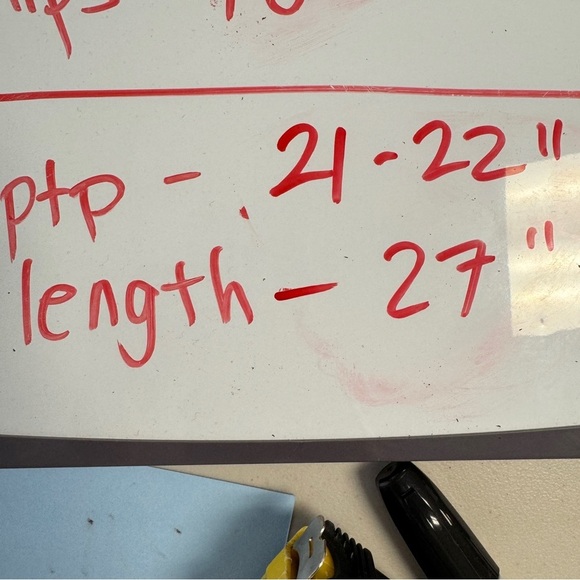 ptp - 21-22"
length - 27"